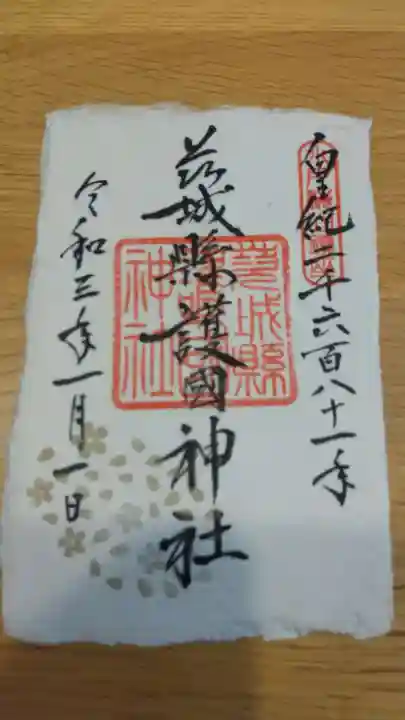 皇紀二千六百八十一年
茨城縣護國神社
茨城縣
神社
令和三年一月一日